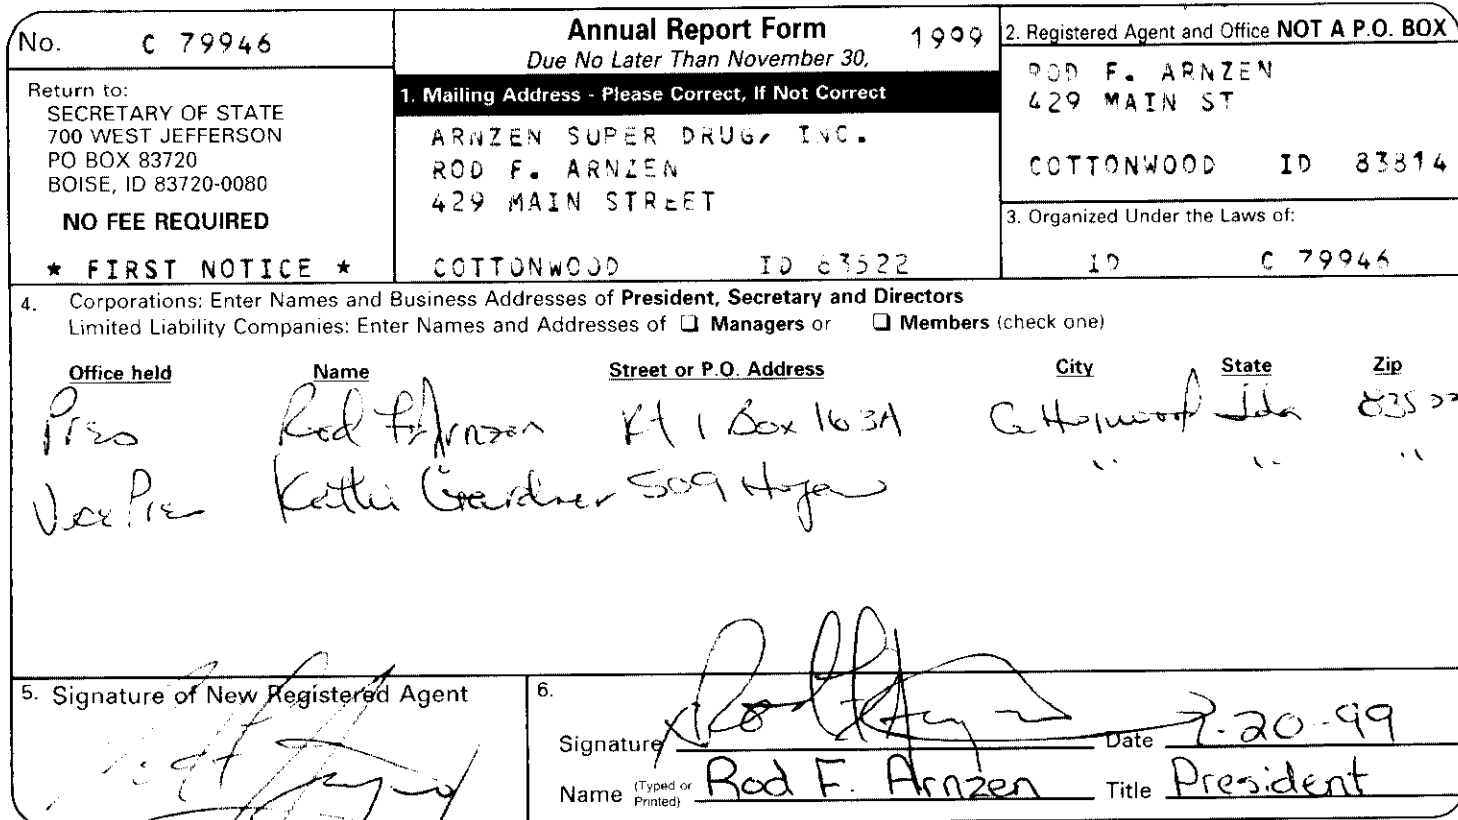 No. C 79946
Annual Report Form 1999
Due No Later Than November 30,
Return to:
SECRETARY OF STATE
700 WEST JEFFERSON
PO BOX 83720
BOISE, ID 83720-0080
NO FEE REQUIRED
* FIRST NOTICE *
1. Mailing Address - Please Correct, If Not Correct
ARNZEN SUPER DRUG, INC.
ROD F. ARNZEN
429 MAIN STREET
COTTONWOOD ID 83522
2. Registered Agent and Office NOT A P.O. BOX
ROD F. ARNZEN
429 MAIN ST
COTTONWOOD ID 83814
3. Organized Under the Laws of:
ID C 79946
4. Corporations: Enter Names and Business Addresses of President, Secretary and Directors
Limited Liability Companies: Enter Names and Addresses of ❑ Managers or ❑ Members (check one)
Office held Name Street or P.O. Address City State Zip
Pres Rod F Arnzen Rt 1 Box 163A Cottonwood Ida 83522
Vice Pres Gardner 509 " " "
5. Signature of New Registered Agent
6.
Signature Rod F Arnzen Date 7-20-99
Name (Typed or Printed) Rod F. Arnzen Title President